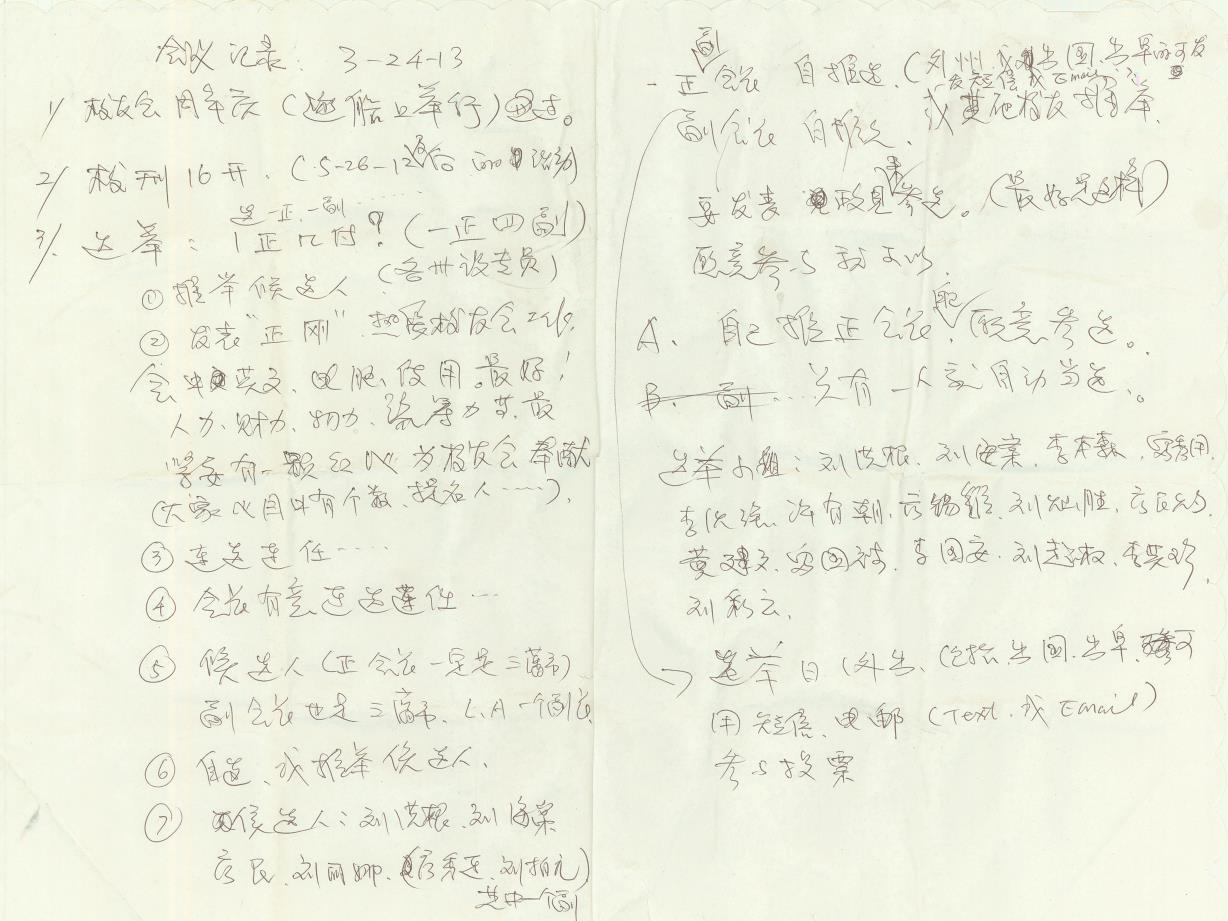 会议记录: 3-24-13
1/ 校友会周年庆(邀船上举行)通过。
2/ 校刊16开. (5-26-12后的活动)
选一正.一副……
3/. 选举: 1正几付?(一正四副)
(各州设专员)
① 推举候选人
② 发表"正刚" 热爱校友会工作.
会中英文、电脑使用.最好!
人力、财力、物力、等.最
要有一颗红心为校友会奉献
(大家心目中有个数、提名人……).
③ 连选连任……
④ 会长有意连选连任…
⑤ 候选人(正会长一定是三藩市)
副会长也是三藩市、L.A一个副长
⑥ 自选、或推举候选人.
⑦ 候选人: 刘洪根.刘
民、刘丽娜.
其中一个副
副
- 正会长 自推选. (外州.或出国.出早的可
发短信或Email).
或其他校友推举.
副会长 自推.
要发表政见来参选。(最好是这样)
愿意参与就可以.
A. 自己推正会长. 愿意参选..
B. 副 …. 只有一人就自动当选..
选举小组: 刘洪根. 刘. 李本.
李. 许有朝. 刘灿胜.
黄建文. 国. 李国安. 刘超权. 李英珍
刘彩云.
选举日(外出、包括出国.出早 可
用短信、电邮(Text.或Email)
参与投票